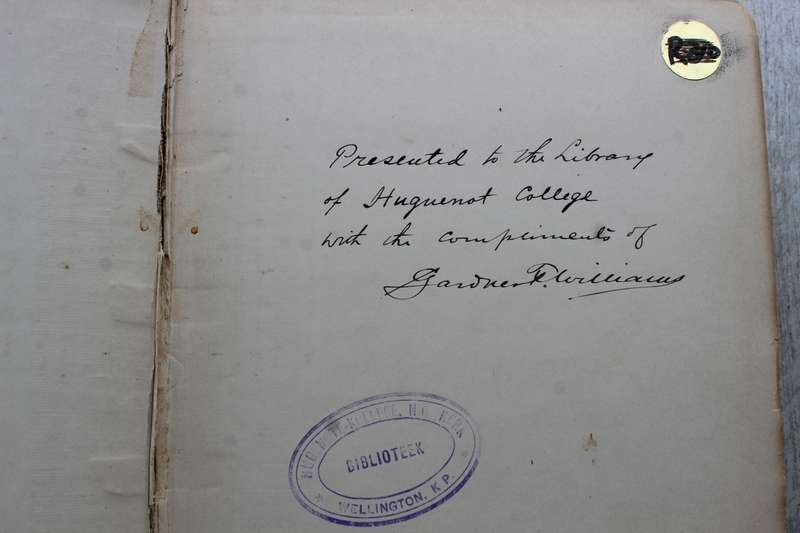 Presented to the Library
of Huguenot College
with the compliments of
Gardner F. Williams
HUGUENOTE-KOLLEGE, N.G. KERK
BIBLIOTEEK
WELLINGTON, K.P.